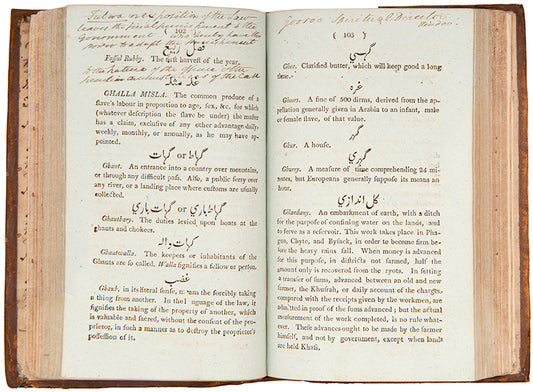 Futwa or exposition of the Law
leaves the
Government
power to adapt the
( 102 )
فصل ربيع
Fussul Rubby. The first harvest of the year.
to the nature of the
of the Case
غله مثل
GHALLA MISLA. The common produce of a
slave's labour in proportion to age, sex, &c. for which
(whatever description the slave be under) the master
has a claim, exclusive of any other advantage daily,
weekly, monthly, or annually, as he may have ap-
pointed.
گهاط or گهات
Ghaut. An entrance into a country over mountains,
or through any difficult pass. Also, a public ferry over
any river, or a landing place where customs are usually
collected.
گهاط باري or گهات باري
Ghautbary. The duties levied upon boats at the
ghauts and chokies.
گهات واله
Ghautwalla. The keepers or inhabitants of the
Ghauts are so called. Walla signifies a fellow or person.
غصب
Ghasb, in its literal sense, means the forcibly taking
a thing from another. In the language of the law, it
signifies the taking of the property of another, which
is valuable and sacred, without the consent of the pro-
prietor, in such a manner as to destroy the proprietor's
possession of it.
Gooroo Spiritual Director
( 103 )
گهي
Ghee. Clarified butter, which will keep good a long
time.
غره
A fine of 500 dirms, derived from the ap-
pellation generally given in Arabia to an infant, male
or female slave, of that value.
گهر
Ghr. A house.
گهري
Ghurry. A measure of time comprehending 24 mi-
nutes, but Europeans generally suppose its means an
hour.
گل اندازي
Gilandazy. An embankment of earth, with a ditch
for the purpose of confining water on the lands, and
to serve as a reservoir. This work takes place in Pha-
gun, Chyte, and Bysack, in order to become firm be-
fore the heavy rains fall. When money is advanced
for this purpose, in districts not farmed, half the
amount only is recovered from the ryots. In setting
a transfer of sums, advanced between an old and new
farmer, the Khusrah, or daily account of the charges,
compared with the receipts given by the workmen, are
admitted in proof of the sums advanced; but the actual
measurement of the work completed, is no rule whate-
ver. These advances ought to be made by the farmer
himself, and not by government, except when lands
are held Khass.